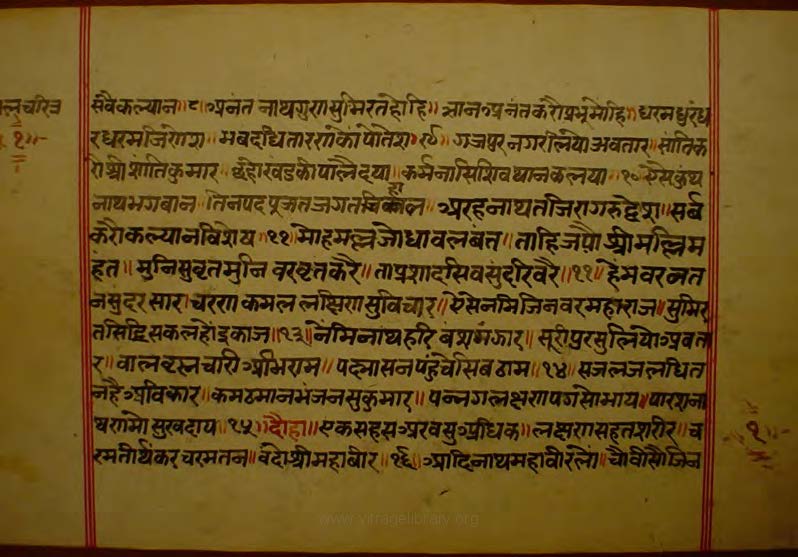 सवैकल्यान॥८॥अनत नाथगुणसुमिरतहोहि॥ज्ञानअनतकरौप्रभूमोहि॥धरमधुरंध
रधरमजिणेश॥भवदधितारणकोपोतेश॥९॥गजपुरनगरलियोअवतार॥सांतिक
रोश्रीशांतिकुमार॥छहोखडकीपालैदया॥कर्मनासिशिवथानकलया॥१०॥ऐसैकुंथ
नाथभगवान॥तिनपदपूजतजगत॥अरहनाथतजिरागरुद्वेश॥सर्ब
करौकल्यानविशेष॥११॥मोहमल्लजोधावलबंत॥ताहिजपौश्रीमल्लिम
हंत॥मुनिसुवृतमुनि वरवृतकरै॥ताप्रशादसिवसुंदरिवरै॥१२॥हेमवरनत
नसुदरसार॥चरणकमललक्षिणसुविचार॥ऐसेनमिजिनवरमहाराज॥सुमिर
तसिद्धिसकलहोइकाज॥१३॥नेमिनाथहरिबंशमझार॥सूरीपुरसुलियोअवता
र॥वालवृह्मचारीअभिराम॥पद्मासनपंहुचेसिवठाम॥१४॥सजलजलधित
नहैअविकार॥कमठमानभंजनसुकुमार॥पन्नगलक्षणपगसोभाय॥पारशना
थणमौसुखदाय॥१५॥दोहा॥एकसहसअरवसुअधिक॥लक्षणसहतशरीर॥च
रमतीर्थंकरचरमतन॥बंदोश्रीमहाबीर॥१६॥आदिनाथमहावीरलौ॥चौवीसौजिन
चरित्र
१
१
www.vitragelibrary.org